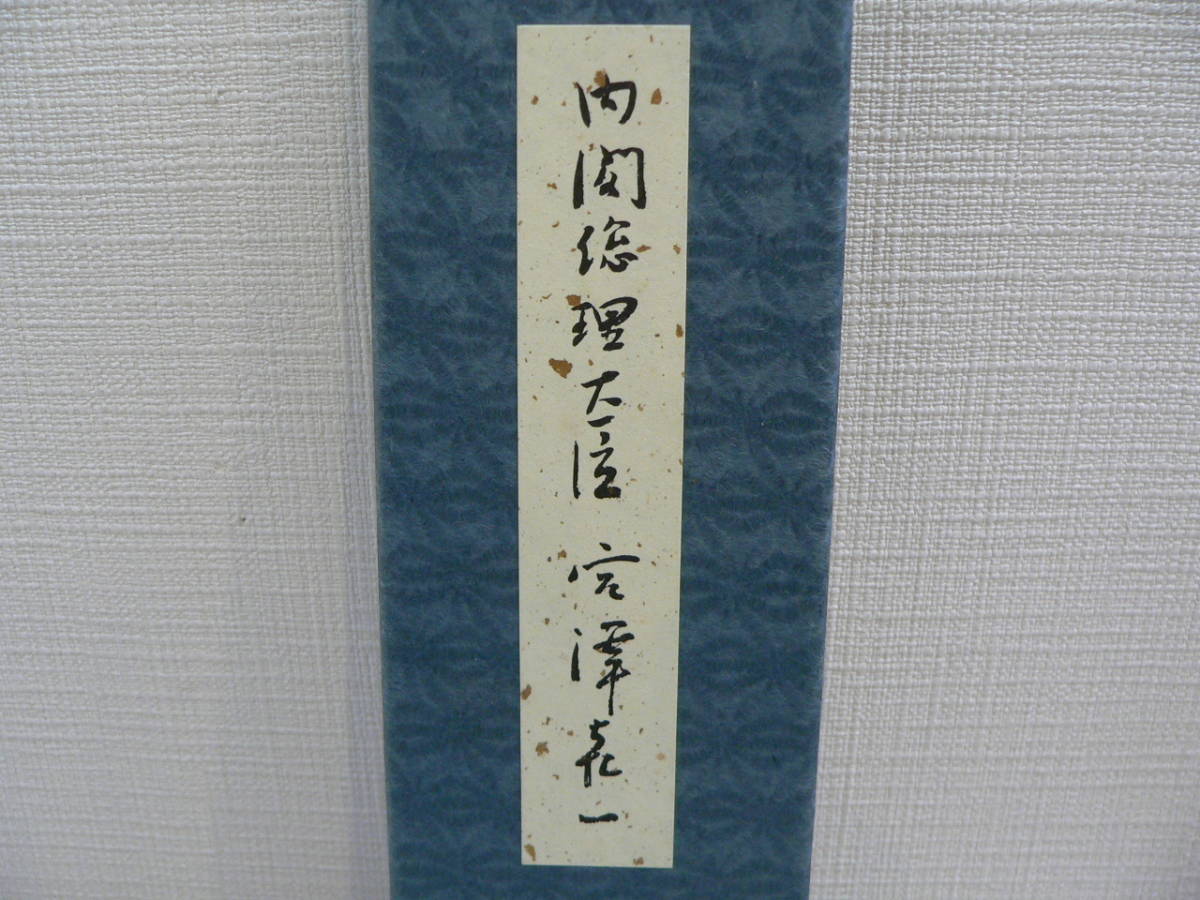 内閣総理大臣 宮澤喜一